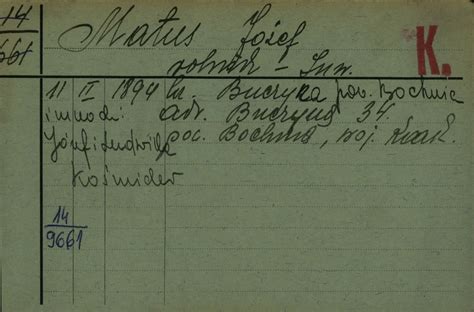 14
661
Matus Józef
K.
rolnik - Inw.
11 II 1894 w. Buczyna pow. Bochnia
im rodz: adr. Buczyna 34
Józef i Ludwika poc. Bochnia, woj. Krak.
Kośmider
14
9661